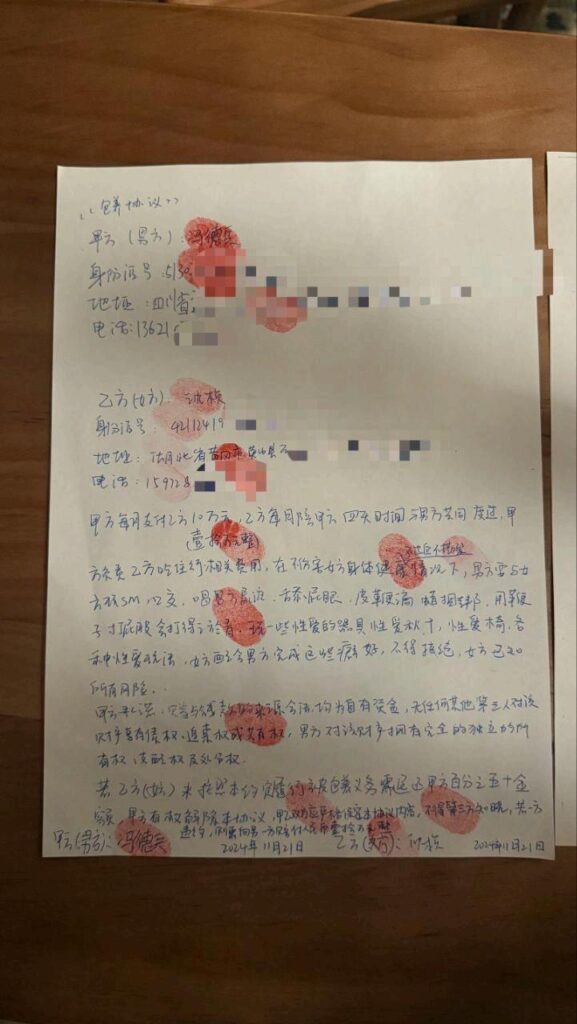 《包养协议》
甲方(男方):冯德兵
身份证号:5130
地址:四川省
电话:13621
乙方(女方):
身份证号:42112419
地址:湖北省黄冈市英山县
电话:159728
甲方每月支付乙方10万元,乙方每月陪甲方四天时间与男方共同度过,甲
(壹拾万元整)
方负责乙方吃住行相关费用,在不伤害女方身体健康情况下,男方要与女
方玩SM,口交,喝男方尿液,舔屁眼,皮鞭滴蜡捆绑,用鞭
子打屁股会打得
玩一些性爱的器具性爱
,性爱椅,各
种性爱玩法,女方配合男方完成这些癖好,不得拒绝,女方已知
所有风险。
甲方承诺
来源合法,均为自有资金,无任何其他第三人对该
财产享有债权、追索权或共有权,男方对该财产拥有完全的独立的所
有权、支配权及处分权。
若乙方(女方)未按照本约定履行被包养义务需退还甲方百分之五十金
额,甲方有权解除本协议,甲乙双方应严格保密本协议内容,不得第三方知晓,若一方
违约,则需向另一方赔付人民币壹拾万元整
甲方(男方):冯德兵 2024年11月21日 乙方(女方): 2024年11月21日